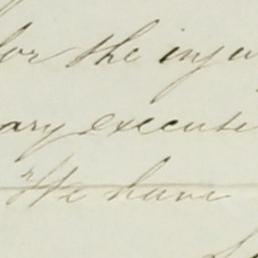 for the inju
ary execute
"We have